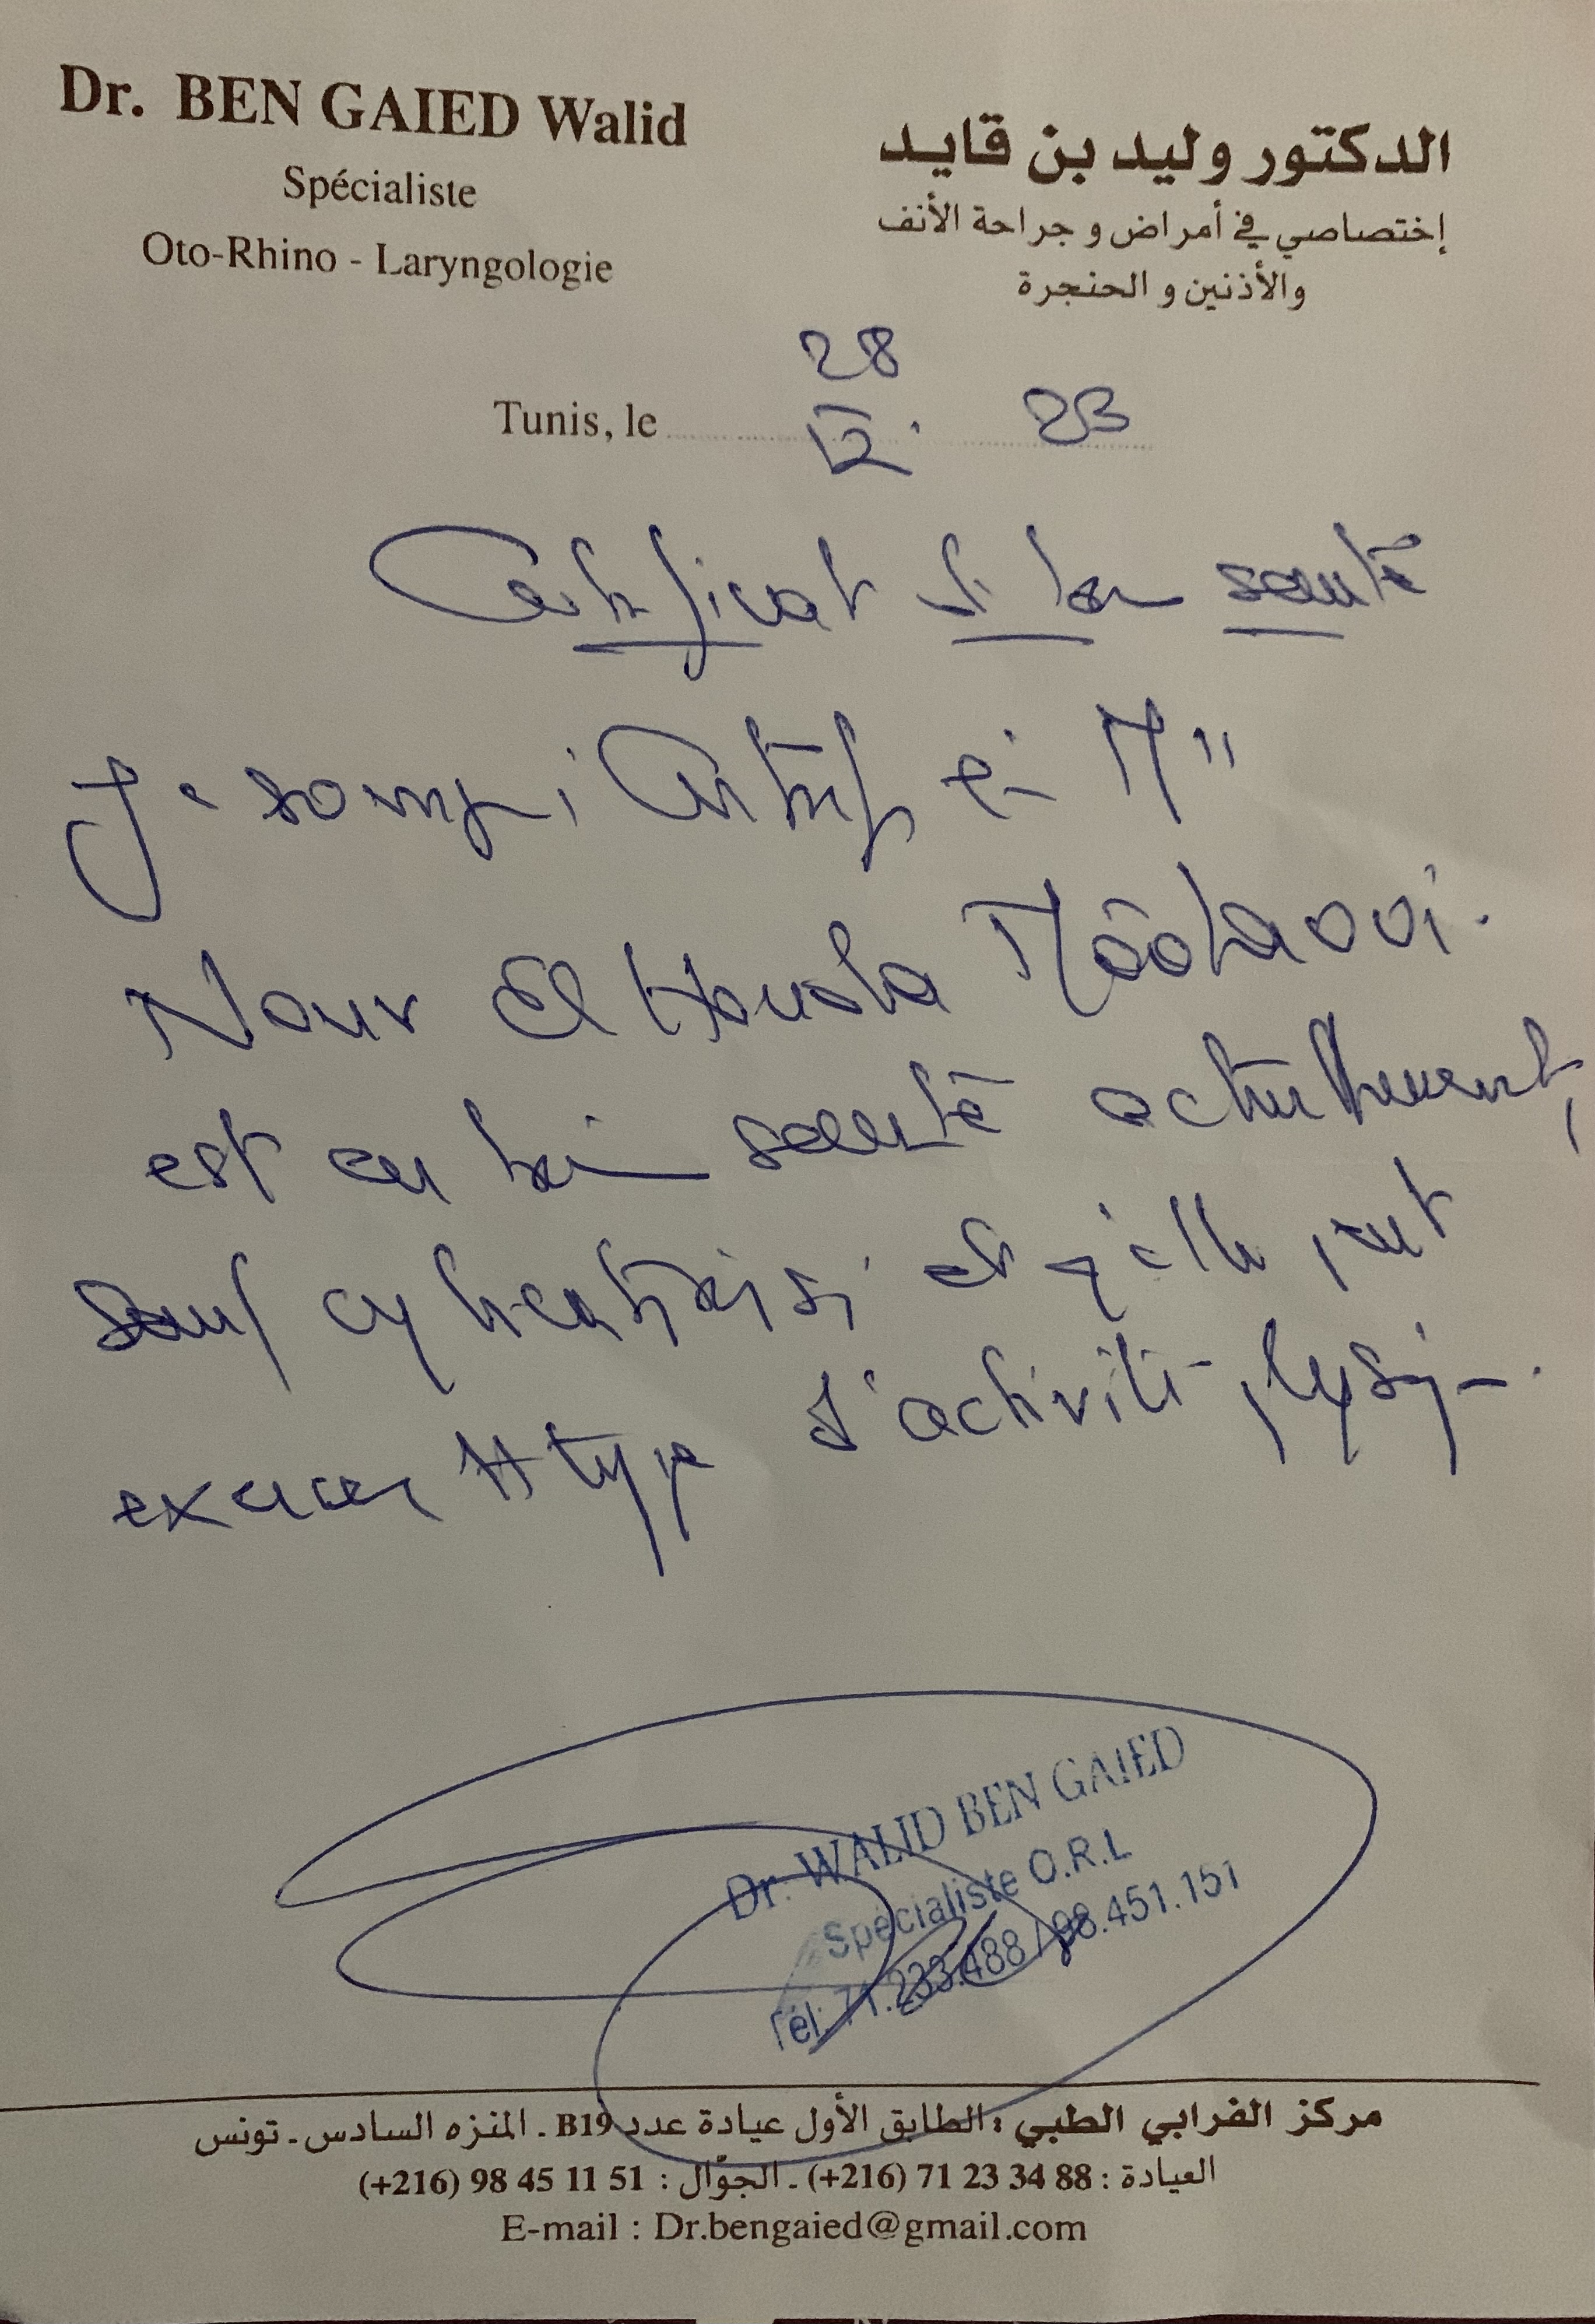 Dr. BEN GAIED Walid
Spécialiste
Oto-Rhino - Laryngologie
الدكتور وليد بن قايد
إختصاصي في أمراض و جراحة الأنف
والأذنين و الحنجرة
Tunis, le 28 12. 23
Certificat de bonne santé
Je soussigné Certifie que Mlle
Nour El Houda
est en bonne santé actuellement,
sauf et qu'elle peut
exercer tt type d'activité physique.
Dr. WALID BEN GAIED
Spécialiste O.R.L
Tél. 71.233.488 / 98.451.151
مركز الفرابي الطبي : الطابق الأول عيادة عدد B19 ـ المنزه السادس ـ تونس
العيادة : 88 34 23 71 (216+) ـ الجوّال : 51 11 45 98 (216+)
E-mail : Dr.bengaied@gmail.com